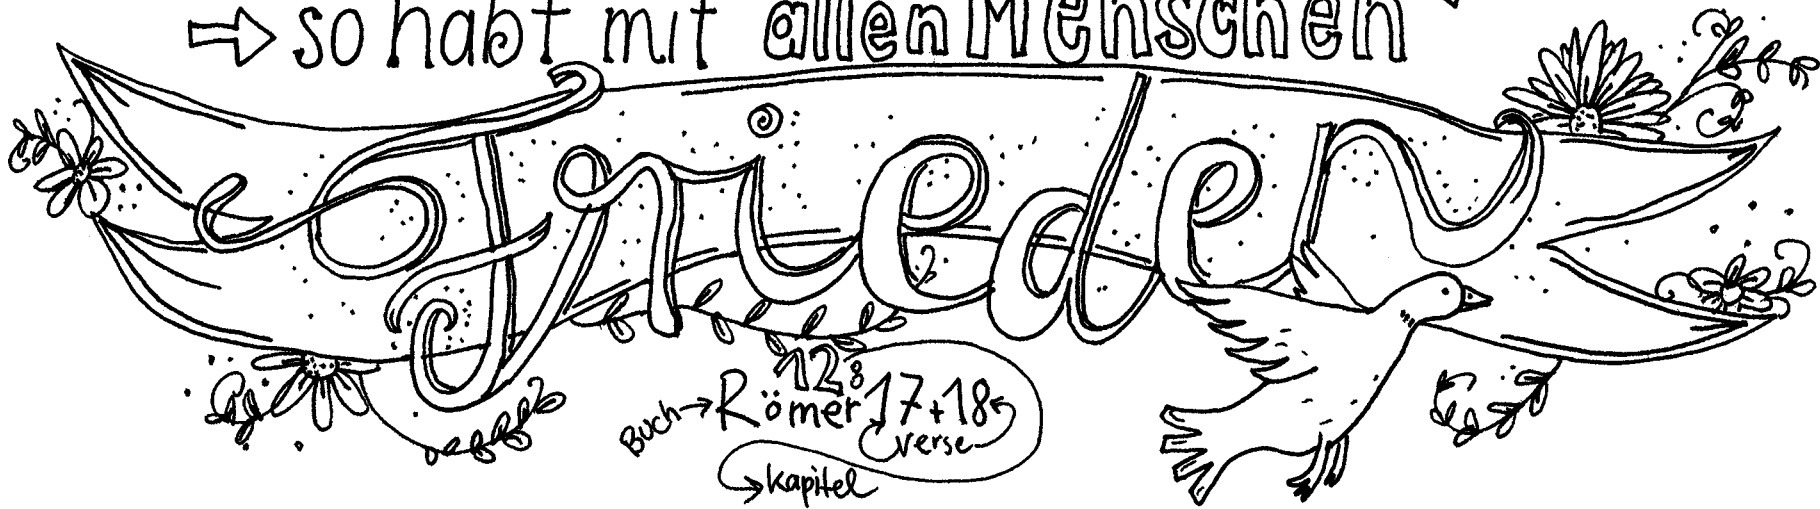 ⇨ so habt mit allen Menschen
Frieden
Buch → Römer 12, 17+18
verse
kapitel